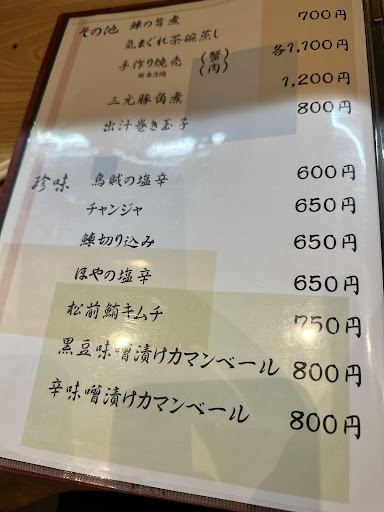 その他 鰊の旨煮 700円
気まぐれ茶碗蒸し
手作り焼売 (蟹) (肉) 各1,100円
※各3個
三元豚角煮 1,200円
出汁巻き玉子 800円
珍味 烏賊の塩辛 600円
チャンジャ 650円
鰊切り込み 650円
ほやの塩辛 650円
松前鮪キムチ 750円
黒豆味噌漬けカマンベール 800円
辛味噌漬けカマンベール 800円